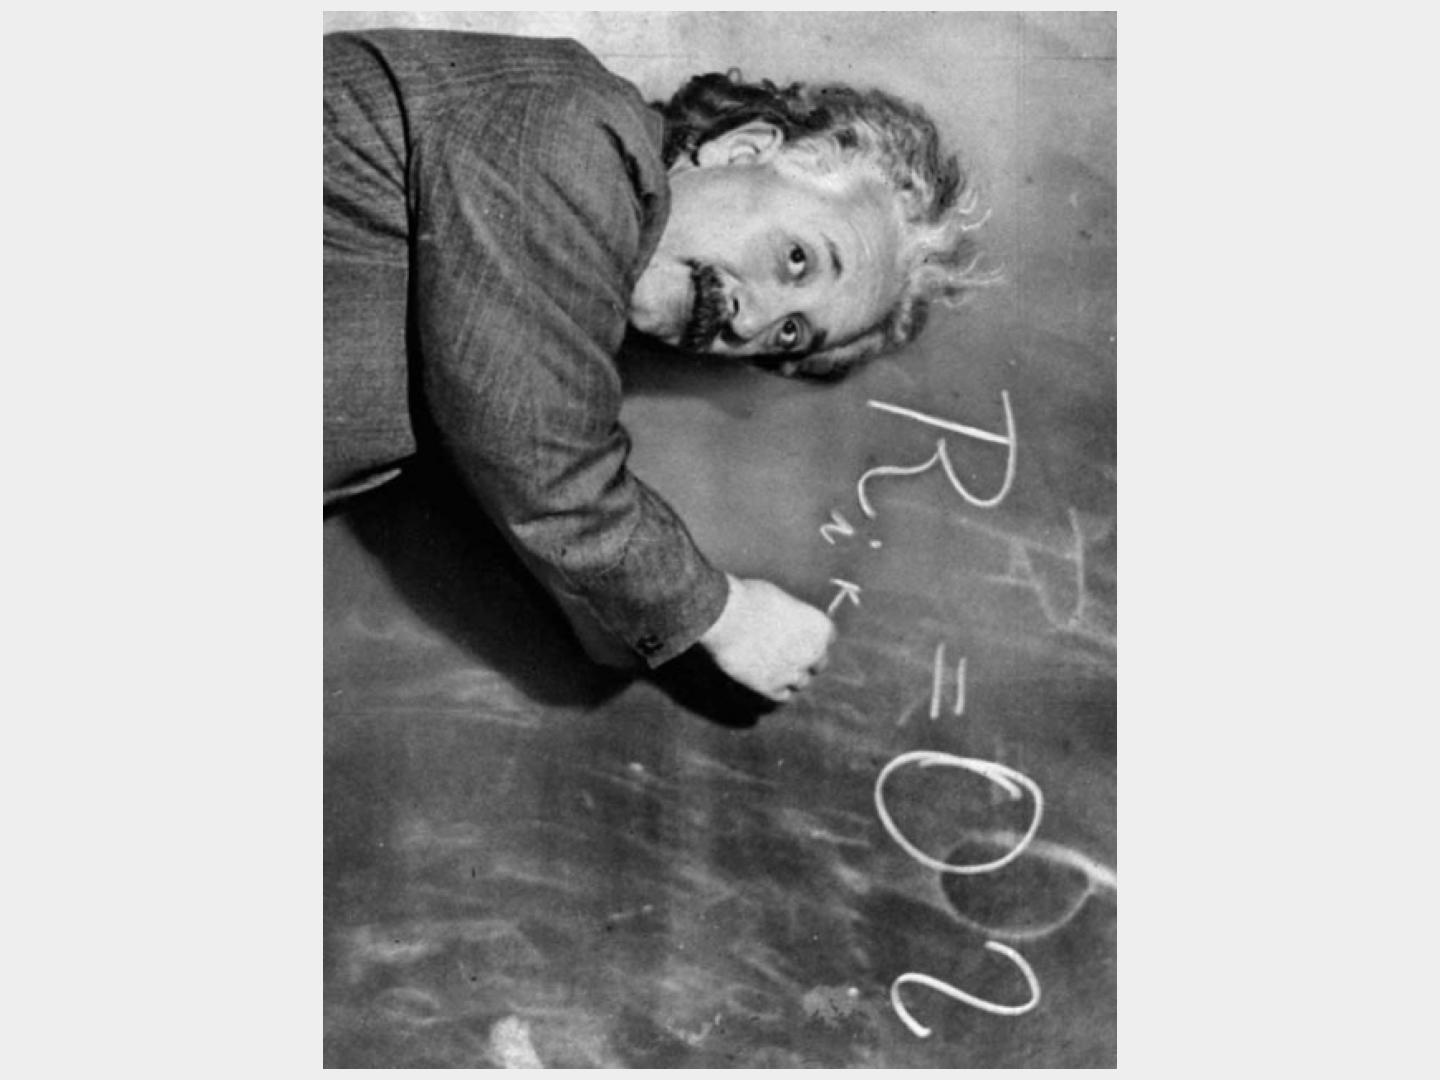 R i k = 0 ?